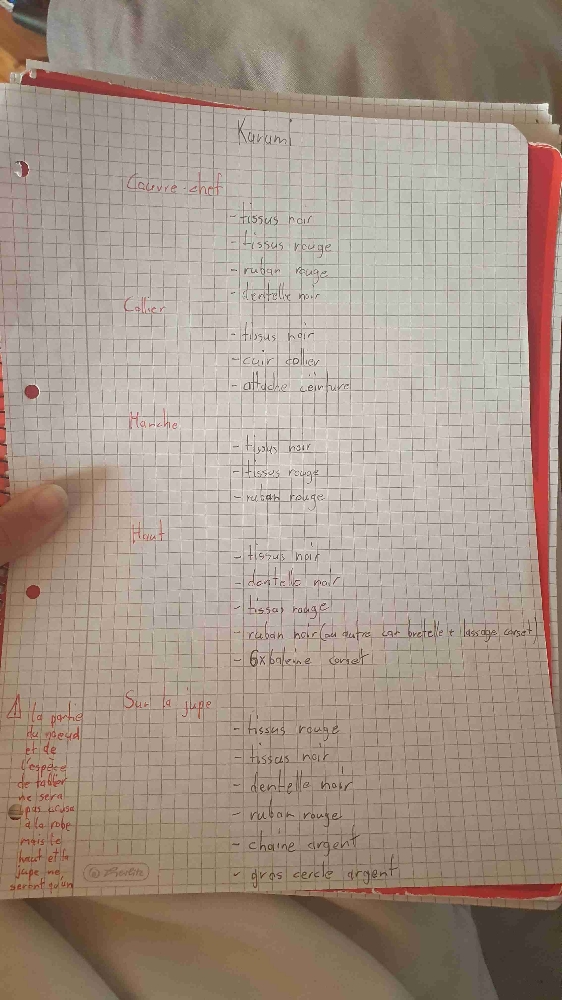 Kurumi
Couvre-chef
- tissus noir
- tissus rouge
- ruban rouge
- dentelle noir
Collier
- tissus noir
- cuir collier
- attache ceinture
Manche
- tissus noir
- tissus rouge
- ruban rouge
Haut
- tissus noir
- dentelle noir
- tissas rouge
- ruban noir (ou autre car bretelle + lassage corset)
- 6x baleine corset
Sur la jupe
- tissus rouge
- tissus noir
- dentelle noir
- ruban rouge
- chaine argent
- gros cercle argent
⚠ la partie
du noeud
et de
l'espèce
de tablier
ne sera
pas cousu
à la robe
mais le
haut et la
jupe ne
seront qu'un